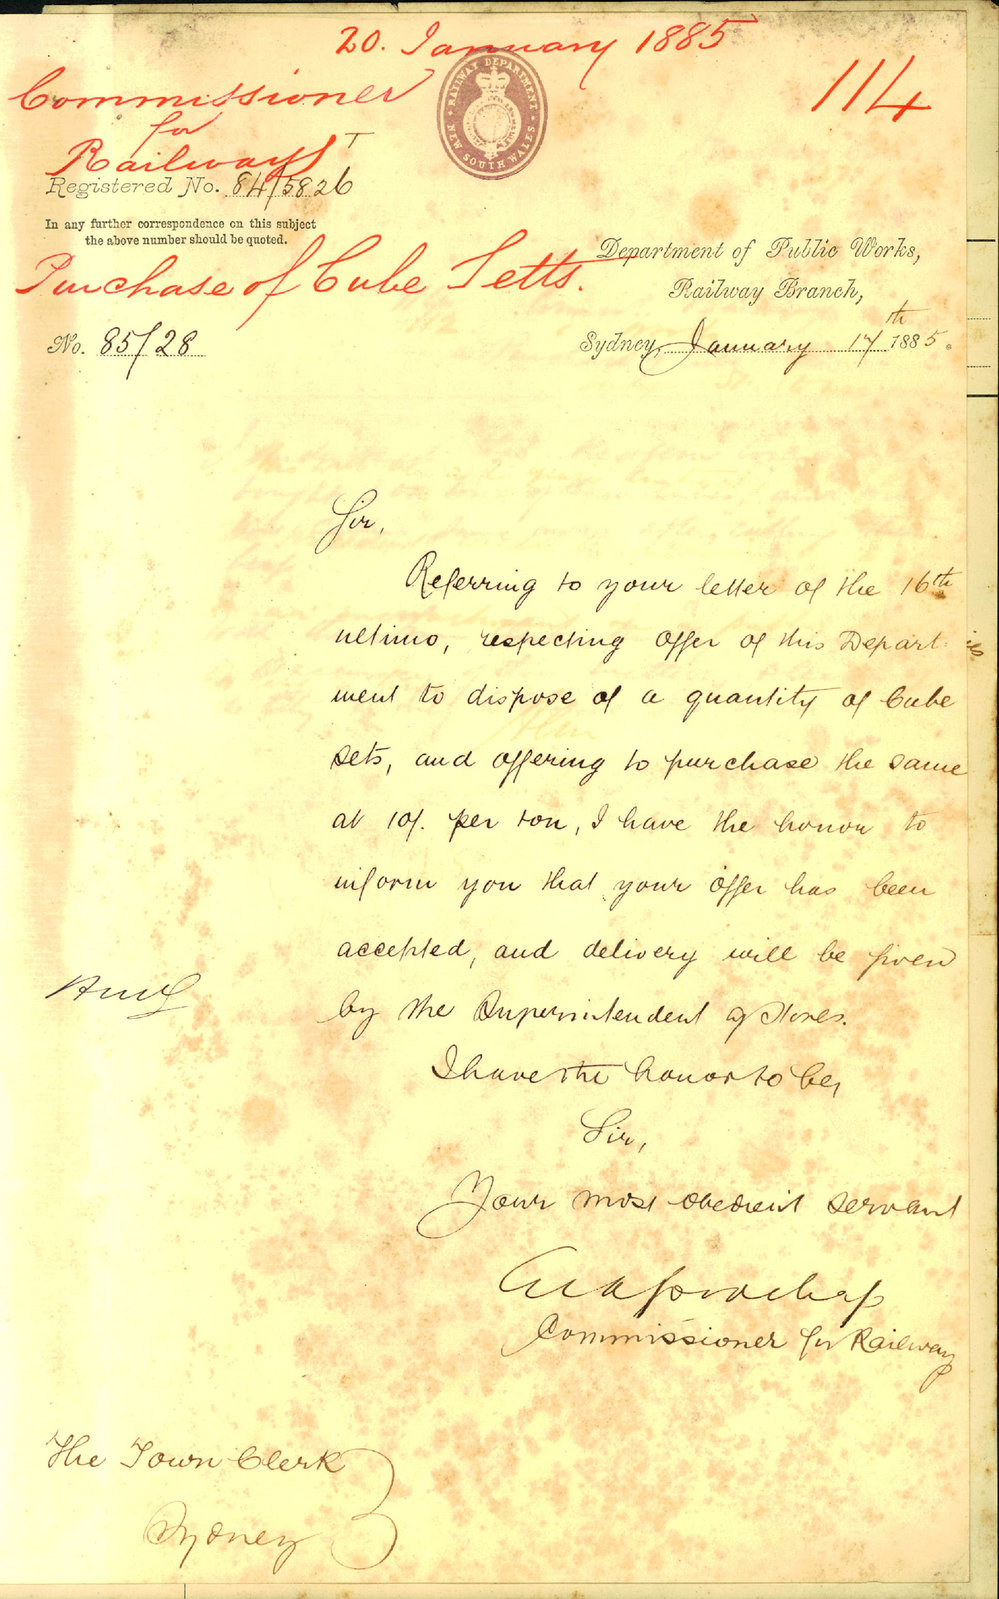 20. January 1885
114
Commissioner
for
Railways
RAILWAY DEPARTMENT
NEW SOUTH WALES
T
Registered No. 84/5826
In any further correspondence on this subject
the above number should be quoted.
Purchase of Cube Setts.
Department of Public Works,
Railway Branch,
No. 85/28
Sydney, January 17th 1885.
Sir,
Referring to your letter of the 16th
ultimo, respecting offer of this Depart-
ment to dispose of a quantity of Cube
sets, and offering to purchase the same
at 10/. per ton, I have the honor to
inform you that your offer has been
accepted, and delivery will be given
by the Superintendent of Stores.
I have the honor to be,
Sir,
Your most obedient servant
Commissioner for Railways
The Town Clerk
Sydney